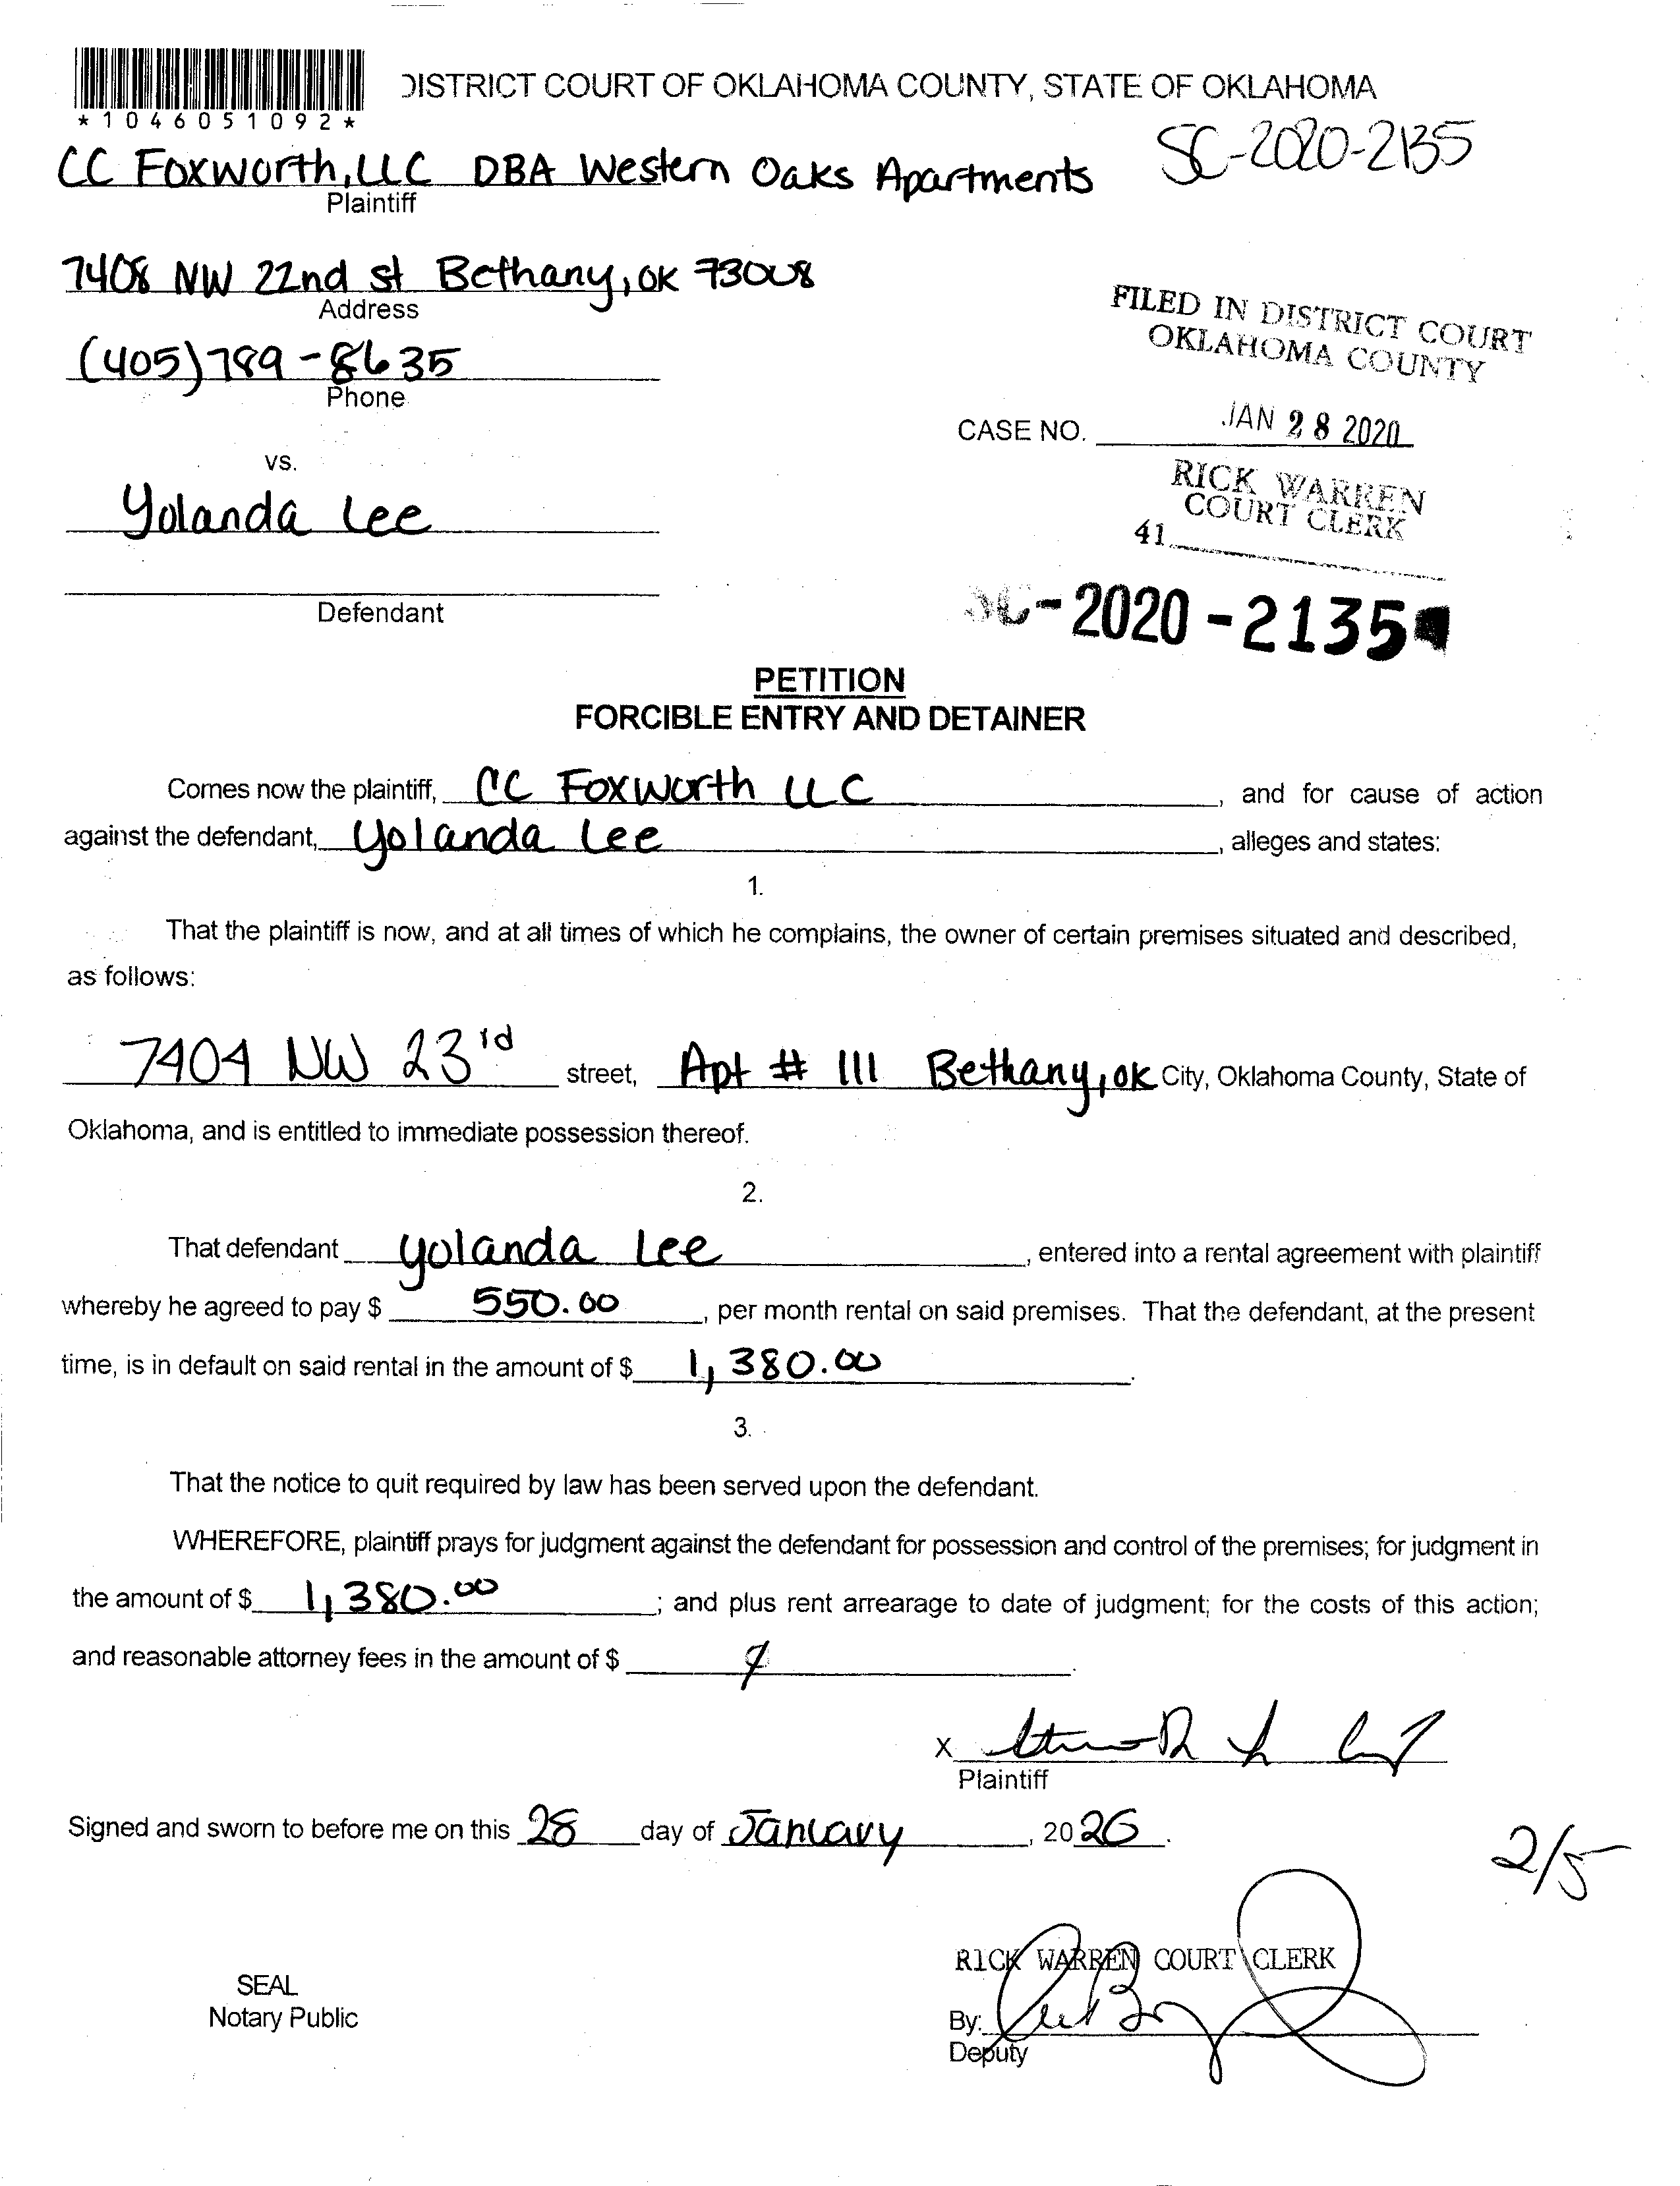 *1046051092*
DISTRICT COURT OF OKLAHOMA COUNTY, STATE OF OKLAHOMA
SC-2020-2135
CC Foxworth, LLC DBA Western Oaks Apartments
Plaintiff
7408 NW 22nd st Bethany, OK 73008
Address
FILED IN DISTRICT COURT
OKLAHOMA COUNTY
(405) 789-8635
Phone
CASE NO. JAN 28 2020
vs.
RICK WARREN
COURT CLERK
41
Yolanda Lee
SC-2020-2135
Defendant
PETITION
FORCIBLE ENTRY AND DETAINER
Comes now the plaintiff, CC Foxworth LLC, and for cause of action
against the defendant, Yolanda Lee, alleges and states:
1.
That the plaintiff is now, and at all times of which he complains, the owner of certain premises situated and described,
as follows:
7404 NW 23rd street, Apt # 111 Bethany, OK City, Oklahoma County, State of
Oklahoma, and is entitled to immediate possession thereof.
2.
That defendant Yolanda Lee, entered into a rental agreement with plaintiff
whereby he agreed to pay $ 550.00, per month rental on said premises. That the defendant, at the present
time, is in default on said rental in the amount of $ 1,380.00.
3.
That the notice to quit required by law has been served upon the defendant.
WHEREFORE, plaintiff prays for judgment against the defendant for possession and control of the premises; for judgment in
the amount of $ 1,380.00; and plus rent arrearage to date of judgment; for the costs of this action;
and reasonable attorney fees in the amount of $
X
Plaintiff
Signed and sworn to before me on this 28 day of January, 2020.
2/5
RICK WARREN COURT CLERK
SEAL
Notary Public
By:
Deputy